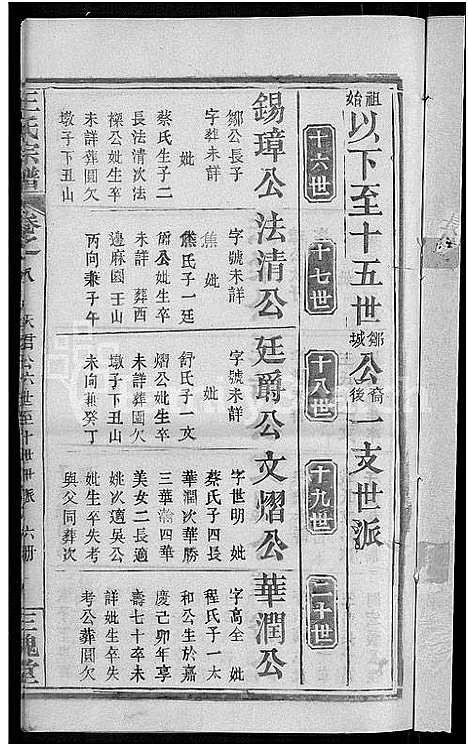 始祖以下至十五世鄒城公後裔一支世派
十六世
十七世
十八世
十九世
二十世
錫璋公
鄒公長子
字葬未詳
妣
蔡氏生子二
長法清次法
操公妣生卒
未詳葬圓欠
墩子下丑山
法清公
字號未詳
焦 妣
熊氏子一廷
爵公妣生卒
未詳 葬西
邊麻園壬山
丙向兼子午
廷爵公
字號未詳
妣
舒氏子一文
熠公妣生卒
未詳葬圓欠
墩子下丑山
未向兼癸丁
文熠公
字世明 妣
蔡氏子四長
華潤次華勝
三華瀚四華
美女二長適
姚次適吳公
妣生卒失考
與父同葬次
華潤公
字高全 妣
程氏子一大
和公生於嘉
慶己卯年享
壽七十卒未
詳妣生卒失
考公葬圓欠
王氏宗譜
卷之八
公六世至十世世派
六册
三槐堂